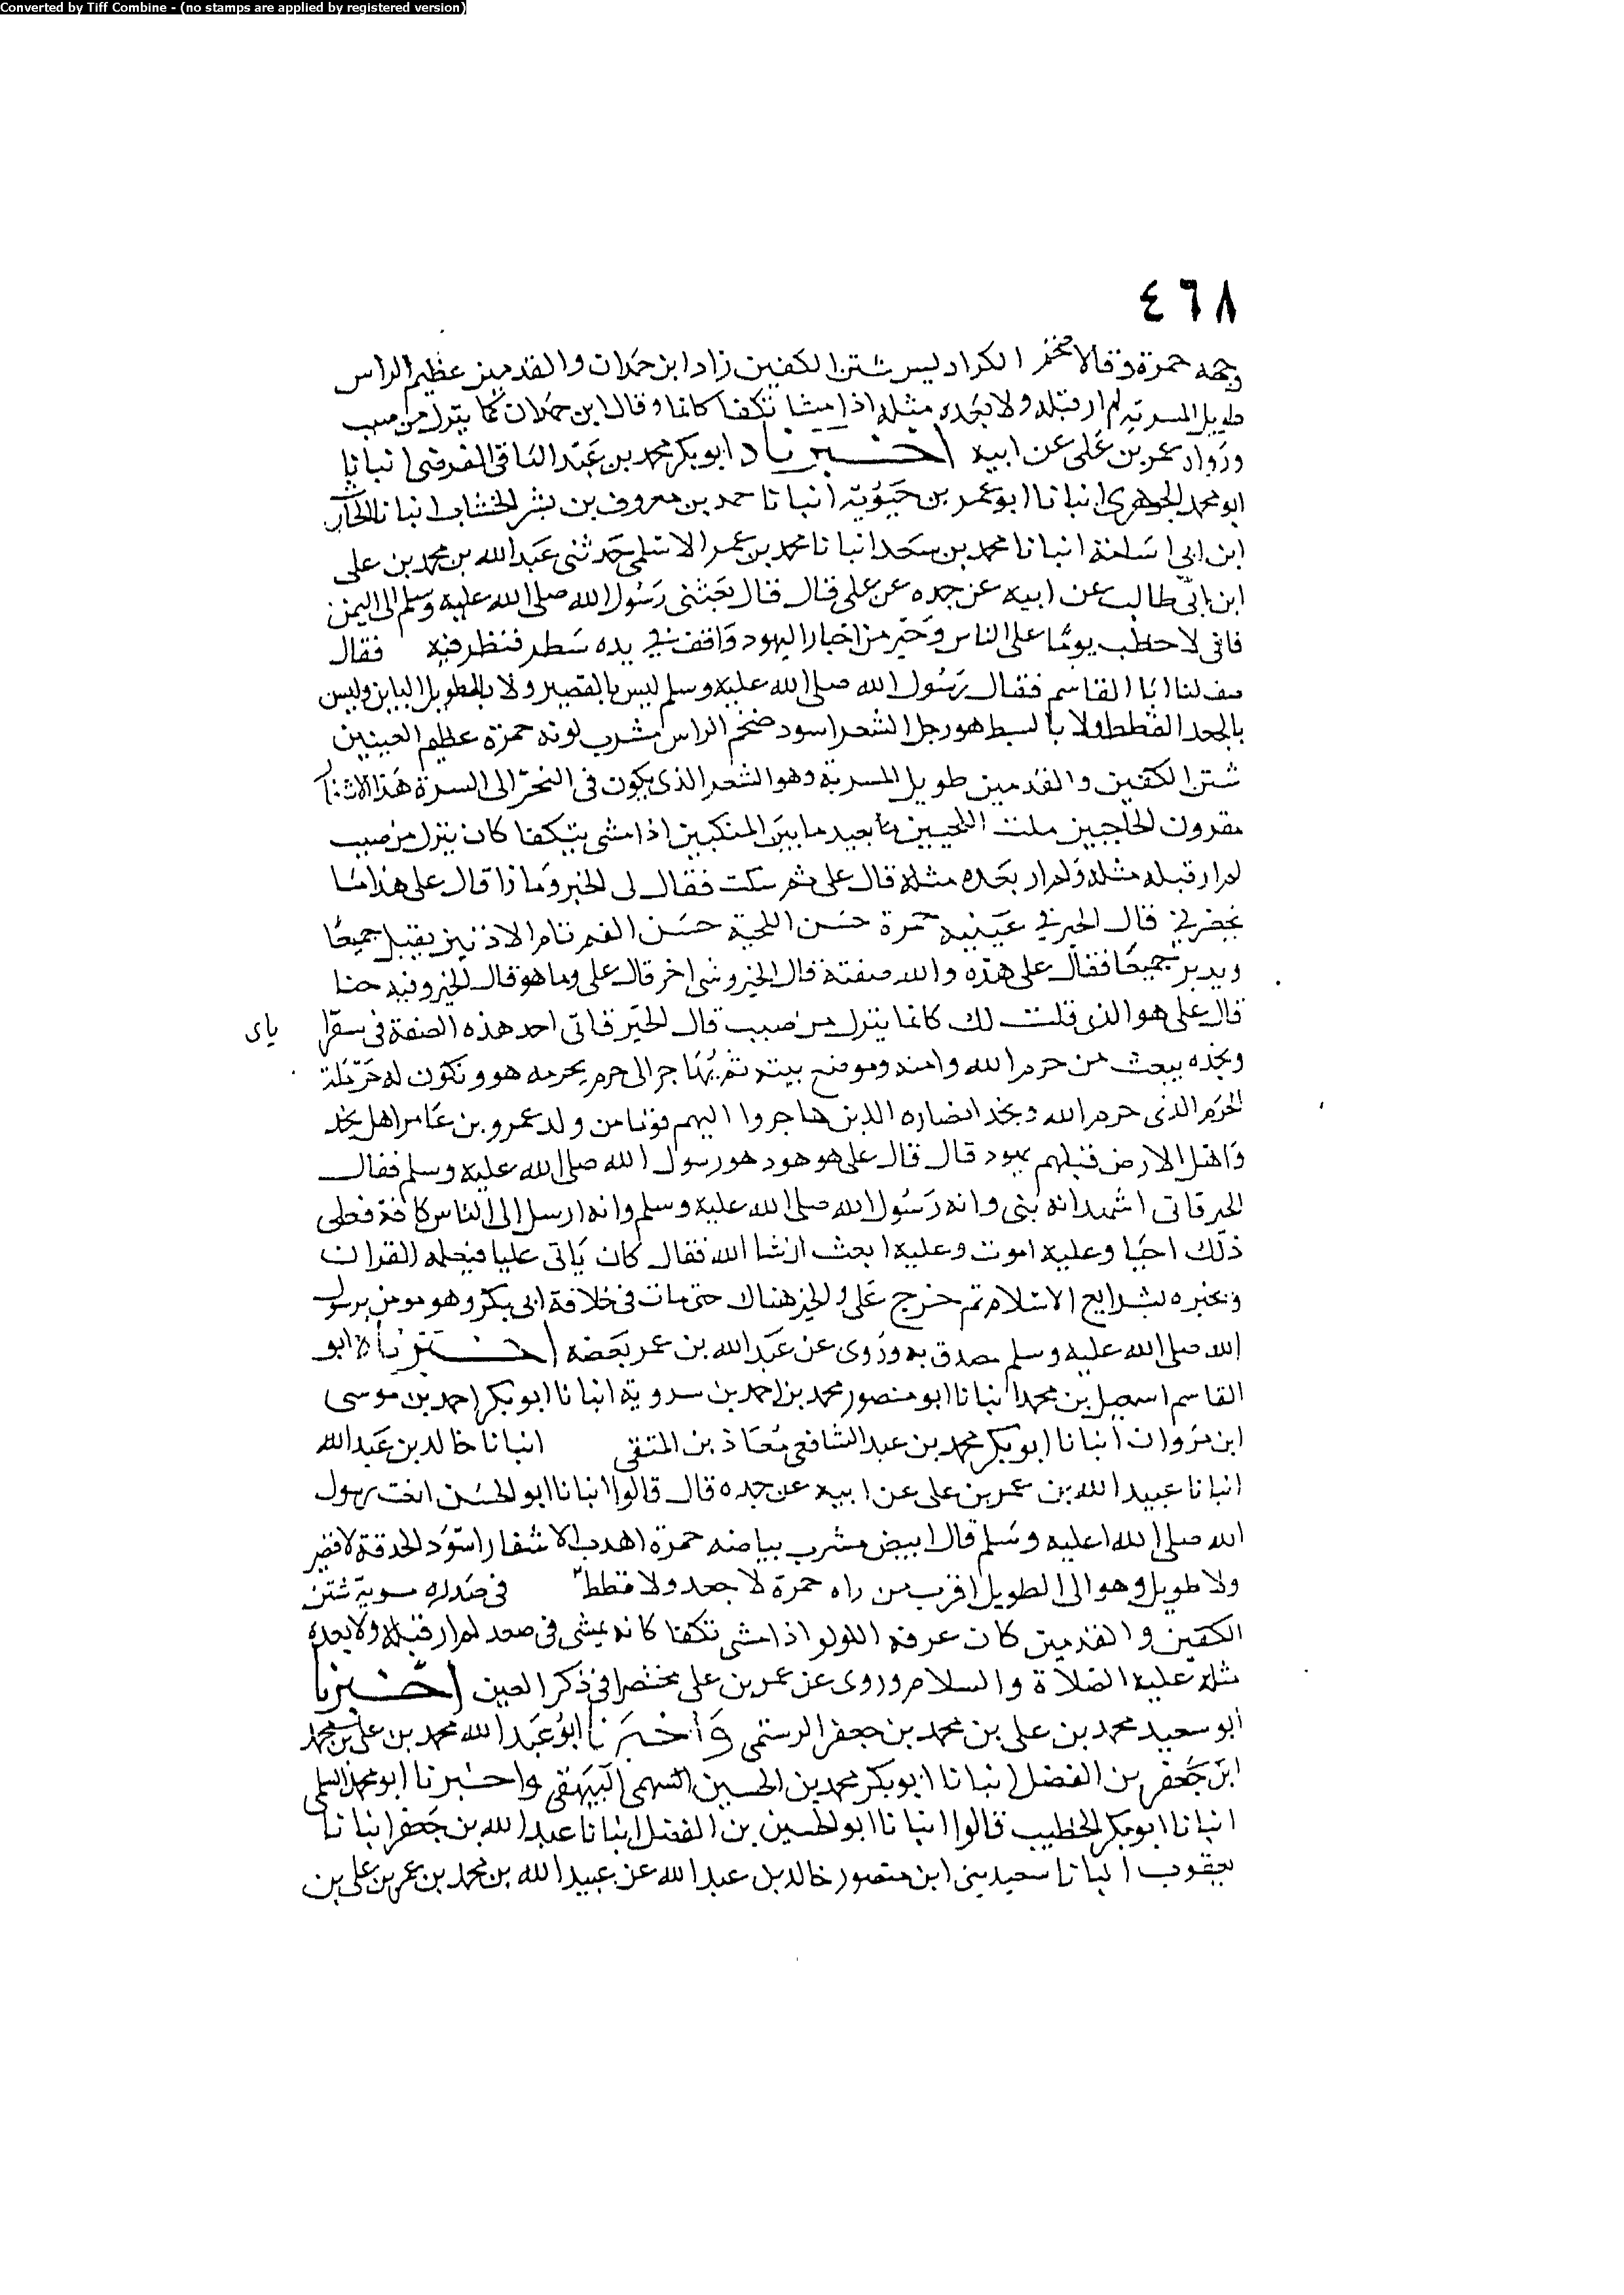 Converted by Tiff Combine - (no stamps are applied by registered version)
٤٦٨
وجهه حمرة وقالا ضخم الكراديس شثن الكفين زاد ابن حمدان والقدمين عظيم الراس
طويل المسربة لم ار قبله ولا بعده مثله اذا مشا تكفا كانما وقال ابن حمدان كما ينزل من صبب
ورواه عمر بن على عن ابيه اخبرناه ابو بكر محمد بن عبد الباقى الفرضى انبانا
ابو محمد الجوهرى انبانا ابو عمر بن حيوية انبانا احمد بن معروف بن بشر الخشاب انبانا الحارث
ابن ابى اسامة انبانا محمد بن سعد انبانا محمد بن عمر الاسلمى حدثنى عبد الله بن محمد بن على
ابن ابى طالب عن ابيه عن جده عن على قال قال بعثنى رسول الله صلى الله عليه وسلم الى اليمن
فانى لاخطب يوما على الناس وحبر من احبار اليهود واقف فى يده سطر فنظر فيه فقال
صف لنا ابا القاسم فقال رسول الله صلى الله عليه وسلم ليس بالقصير ولا بالطويل الباين وليس
بالجعد القطط ولا بالسبط هو رجل الشعر اسود ضخم الراس مشرب لونه حمرة عظيم العينين
شثن الكفين والقدمين طويل المسربة وهو الشعر الذى يكون فى النحر الى السرة هدب الاشفار
مقرون الحاجبين صلت الجبين بعيد ما بين المنكبين اذا مشى يتكفا كان ينزل من صبب
لم ار قبله مثله ولم ار بعده مثله قال على ثم سكت فقال لى الحبر وماذا قال على هذا ما
يحضرنى قال الحبر فى عينيه حمرة حسن اللحية حسن الفم تام الاذنين يقبل جميعا
ويدبر جميعا فقال على هذه والله صفته قال الحبر وشى اخر قال على وما هو قال الحبر وفيه حنا
قال على هو الذى قلت لك كانما ينزل من صبب قال الحبر فانى اجد هذه الصفة فى سفر اباى
ونجده يبعث من حرم الله وامنه وموضع بيته ثم يهاجر الى حرم يحرمه هو وتكون له حرمة
الحرم الذى حرم الله ونجد انصاره الذين هاجروا اليهم قوما من ولد عمرو بن عامر اهل نخل
واهل الارض قبلهم يهود قال قال على هو هو هو رسول الله صلى الله عليه وسلم فقال
الحبر فانى اشهد انه نبى وانه رسول الله صلى الله عليه وسلم وانه ارسل الى الناس كافة فعلى
ذلك احيا وعليه اموت وعليه ابعث ان شا الله فقال كان ياتى عليا فيعلمه القران
ويخبره بشرايع الاسلام ثم خرج على والحبر هناك حتى مات فى خلافة ابى بكر وهو مومن برسول
الله صلى الله عليه وسلم مصدق به وروى عن عبد الله بن عمر بعضه اخبرناه ابو
القاسم اسمعيل بن محمد انبانا ابو منصور محمد بن احمد بن سدوية انبانا ابو بكر احمد بن موسى
ابن مروان انبانا ابو بكر محمد بن عبد الشافعى معاذ بن المتقى انبانا خالد بن عبد الله
انبانا عبيد الله بن عمر بن على عن ابيه عن جده قال قالوا انبانا ابو الحسن انعت رسول
الله صلى الله عليه وسلم قال ابيض مشرب بياضه حمرة اهدب الاشفار اسود الحدقة لا قصير
ولا طويل وهو الى الطويل اقرب من راه حمرة لا جعد ولا قطط فى صدره سربة شثن
الكفين والقدمين كان عرقه اللولو اذا مشى تكفا كانه يمشى فى صعد لم ار قبله ولا بعده
مثله عليه الصلاة والسلام وروى عن عمر بن على مختصرا فى ذكر العين اخبرنا
ابو سعيد محمد بن على بن محمد بن جعفر الرستمى واخبرنا ابو عبد الله محمد بن على بن محمد
ابن جعفر بن الفضل انبانا ابو بكر محمد بن الحسين السهمى البيهقى واخبرنا ابو محمد السلمى
انبانا ابو بكر الخطيب قالوا انبانا ابو الحسين بن الفضل انبانا عبد الله بن جعفر انبانا
يعقوب انبانا سعيد يعنى ابن منصور خالد بن عبد الله عن عبيد الله بن محمد بن عمر بن على بن